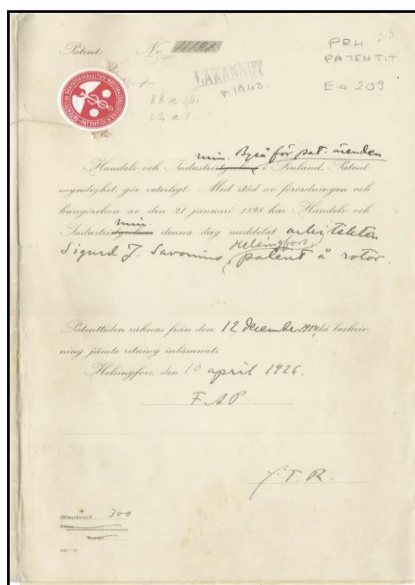 Patent No 11191
PRH
PATENTIT
E-a 209
LAKANNUT
v. 1943.
min. Byrå för pat. ärenden
Handels- och Industristyrelsen i Finland, Patent
myndighet, gör veterligt: Med stöd av förordningen och
kungörelsen av den 21 januari 1898 har Handels- och
min.
Industristyrelsen denna dag meddelat arkitekten
Sigurd J. Savonius, Helsingfors, patent å rotor.
Patenttiden räknas från den 12 december 1924, då beskriv-
ning jämte ritning inlämnats.
Helsingfors, den 10 april 1926.
F. A. P
J. T. R.
300